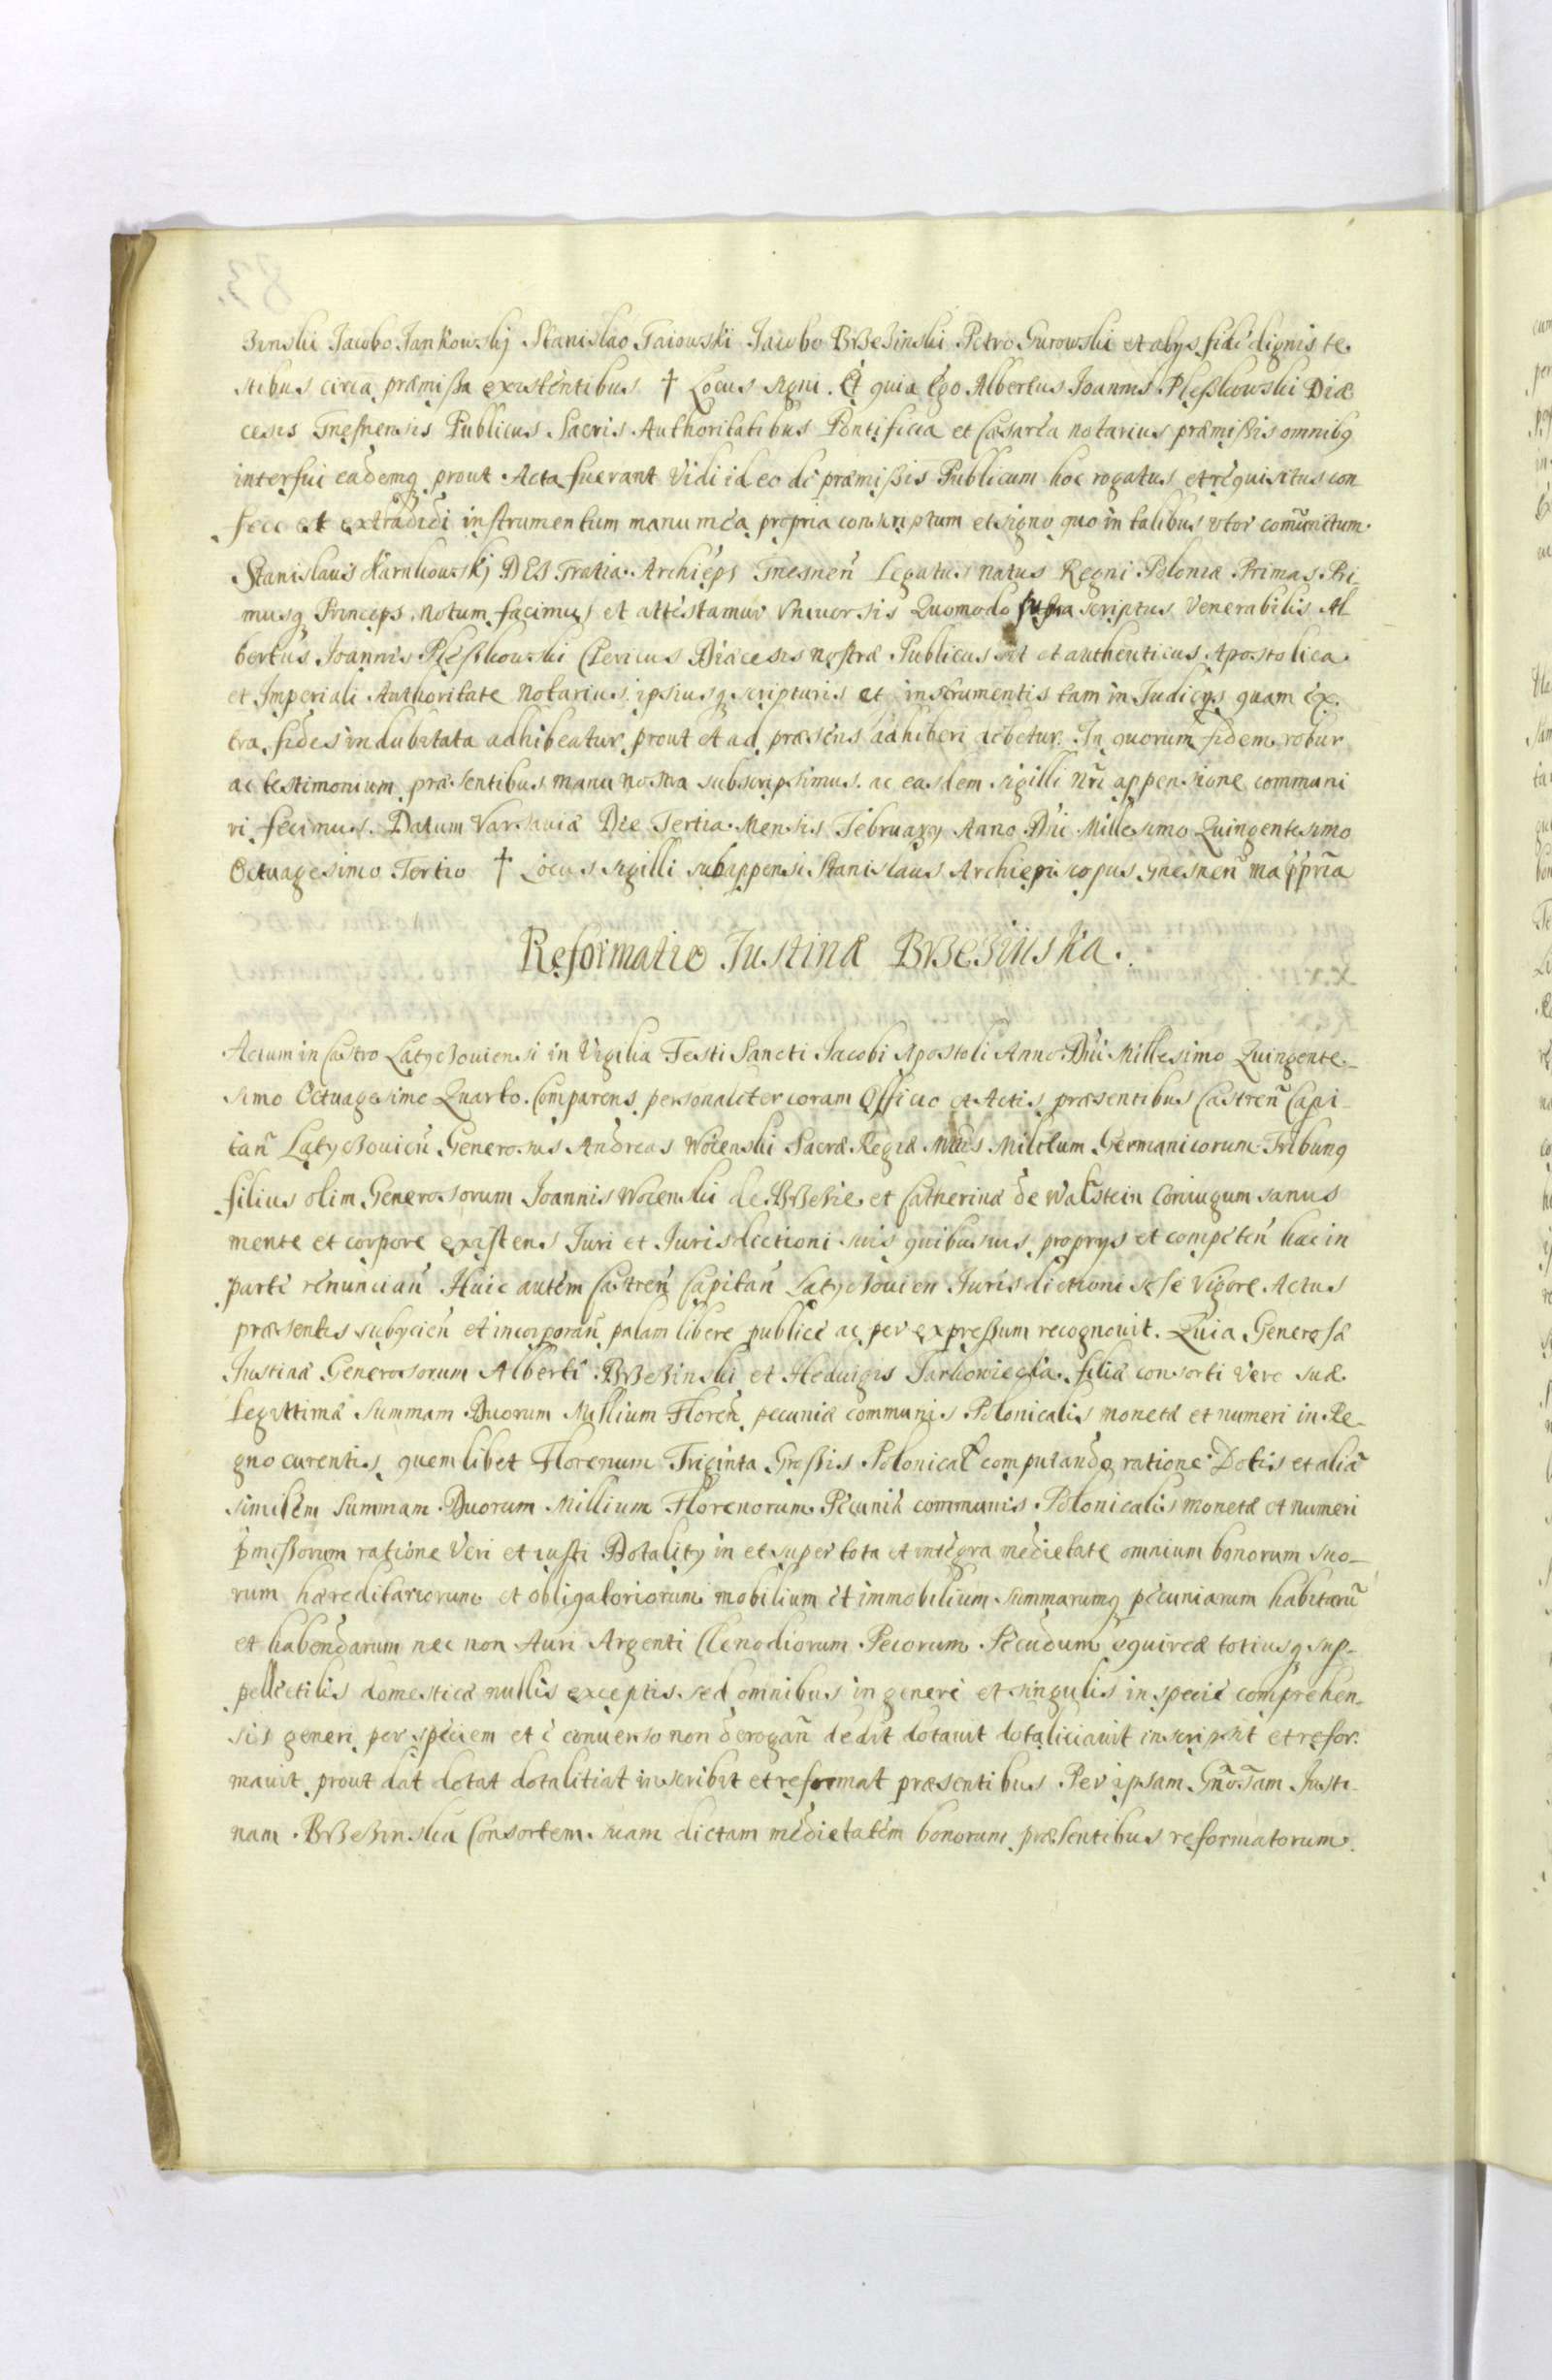 zinski Jacobo Jankowskj Stanislao Gaiowski Jacobo Brzezinski Petro Gurowski et alys fidédignis te
stibus circa præmißa existentibus † Locus signi. Et quia Ego Albertus Joannis Pleßkowski Diæ
cesis Gnesnensis Publicus Sacris Authoritatibus Pontificia et Cæsarea notarius præmißis omnibꝫ
interfui eademqꝫ prout Acta fuerant Vidi ideo de præmißis Publicum hoc rogatus et requisitus con
feci et extradidi instrumentum manu mea propria conscriptum et signo quo in talibus utor comunitum
Stanislaus Karnkowskj DEI Gratia Archiep̃s Gnesneñ Legatus natus Regni Poloniæ Primas Pri-
musqꝫ Princeps notum facimus et attestamur Vniuersis Quomodo supra scriptus Venerabilis Al
bertus Joannis Pleßkowski Clericus Diæcesis nostræ Publicus sit et authenticus Apostolica
et Imperiali Authoritate Notarius ipsiusqꝫ scripturis et instrumentis tam in Judicys quam ex
tra fides indubitata adhibeatur prout et ad præsens adhiberi debetur. In quorum fidem robur
ac testimonium præsentibus manu nostra subscripsimus ac easdem sigilli nr̃i appensione communi
ri fecimus. Datum Varsauiæ Die Tertia Mensis February Anno Dñi Millesimo Quingentesimo
Octuagesimo Tertio † Locus sigilli subappensi Stanislaus Archiepiscopus gnesneñ mapp̃ria
Reformatio Justinæ Brzezinska.
Actum in Castro Latyczouiensi in Vigilia Festi Sancti Jacobi Apostoli Anno Dñi Millesimo Quingente-
simo Octuagesimo Quarto. Comparens personaliter coram Officio et Actis præsentibus Castreñ Capi-
tañ Latyczouieñ Generosus Andreas Wocenski Sacræ Regiæ Mttis Militum Germanicorum Tribunꝫ
filius olim Generosorum Joannis Wocenski de Brzezie et Catherinæ de Walstein Coniugum sanus
mente et corpore existens Juri et Jurisdictioni suis quibusuis proprys et competeñ hac in
parte renunciañ Huic autem Castreñ Capitañ Latyczouien Jurisdictioni sese Vigore Actus
præsentis subycieñ et incorporañ palam libere publice ac per expressum recognouit. Quia Generosæ
Justinæ Generosorum Alberti Brzezinski et Heduigis Tarkowiecka filiæ consorti vero suæ
Legittimæ summam Duorum Millium Floreñ pecuniæ communis Polonicalis monetæ et numeri in Re-
gno curentis quemlibet Florenum Triginta Großis Polonical computando ratione Dotis et aliã
similem summam Duorum Millium Florenorum Pecuniæ communis Polonicalis monetæ et numeri
p̃mißorum ratione Veri et iusti Dotality in et super tota et integra medietate omnium bonorum suo-
rum hæreditariorum et obligatoriorum mobilium et immobilium summarumqꝫ pecuniarum habitarũ
et habendarum nec non Auri Argenti Clenodiorum Pecorum Pecudum equireæ totiusqꝫ sup-
pellectilis domesticæ nullis exceptis sed omnibus in genere et singulis in specie comprehen-
sis generi per speciem et e conuerso non derogañ dedit dotauit dotaliciauit inscripsit et refor-
mauit prout dat dotat dotalitiat inscribit et reformat præsentibus Per ipsam Gñosam Justi-
nam Brzezinska Consortem suam dictam medietatem bonorum præsentibus reformatorum